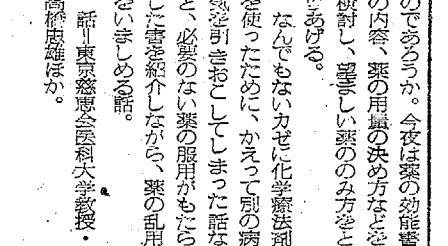 のであろうか。今夜は薬の効能書
の内容、薬の用量の決め方などを
検討し、望ましい薬ののみ方をと
りあげる。
なんでもないカゼに化学療法剤
を使ったために、かえって別の病
気を引きおこしてしまった話な
ど、必要のない薬の服用がもたら
した害を紹介しながら、薬の乱用
をいましめる話。
話＝東京慈恵会医科大学教授・
高橋忠雄ほか。